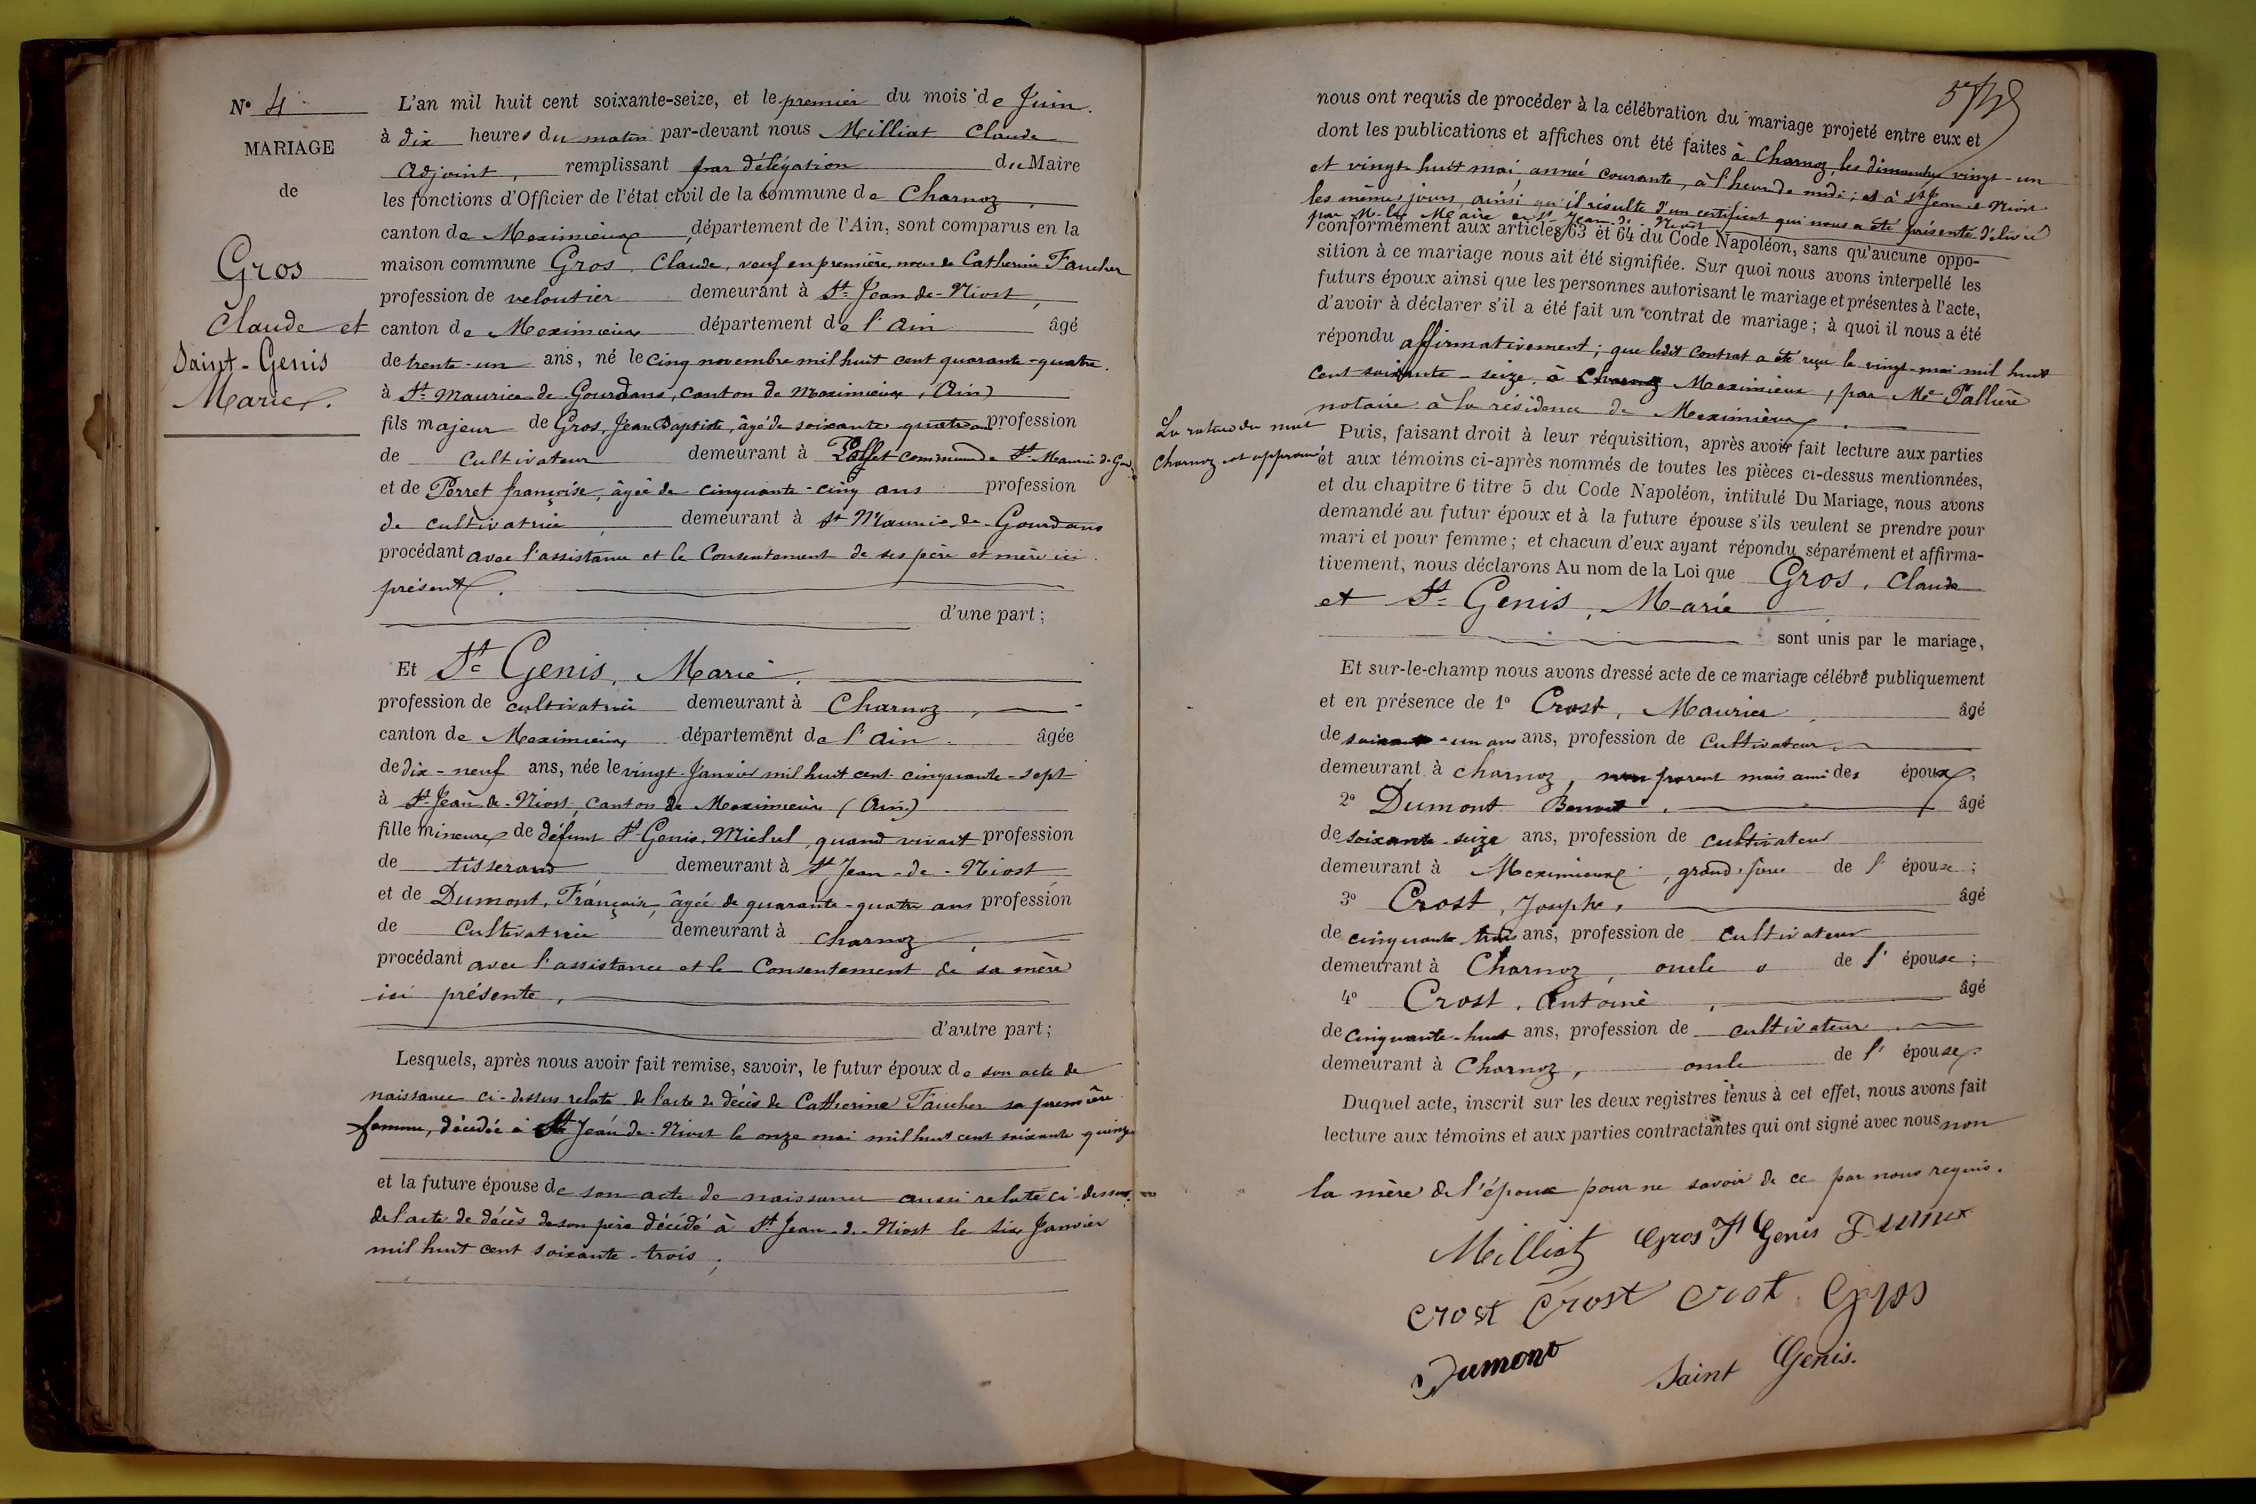 N° 4
MARIAGE
de
Gros
Claude et
Saint-Genis
Marie.
L'an mil huit cent soixante-seize, et le premier du mois de Juin.
à dix heures du matin par-devant nous Milliat Claude
Adjoint, remplissant par délégation du Maire
les fonctions d'Officier de l'état civil de la commune de Charnoz,
canton de Meximieux, département de l'Ain, sont comparus en la
maison commune Gros, Claude, veuf en première noce de Catherine Faucher
profession de veloutier demeurant à St-Jean-de-Niost,
canton de Meximieux département de l'Ain âgé
de trente-un ans, né le cinq novembre mil huit cent quarante-quatre.
à St-Maurice de Gourdans, canton de Meximieux, (Ain)
fils majeur de Gros, Jean Baptiste, âgé de soixante quatre ans profession
de Cultivateur demeurant à commune de St-Maurice de Gour
et de Perret françoise, âgée de cinquante-cinq ans profession
de cultivatrice, demeurant à St Maurice-de-Gourdans
procédant avec l'assistance et le Consentement de ses père et mère ici
présents.
d'une part;
Et St Genis, Marie,
profession de cultivatrice demeurant à Charnoz,
canton de Meximieux département de l'Ain. âgée
de dix-neuf ans, née le vingt Janvier mil huit cent cinquante-sept
à St-Jean-de-Niost, canton de Meximieux (Ain)
fille mineure de défunt St-Genis, Michel, quand vivait profession
de tisserand demeurant à St Jean-de-Niost
et de Dumont, Françoise, âgée de quarante-quatre ans profession
de Cultivatrice demeurant à Charnoz,
procédant avec l'assistance et le Consentement de sa mère
ici présente,
d'autre part;
Lesquels, après nous avoir fait remise, savoir, le futur époux de son acte de
naissance ci-dessus relaté de l'acte de décès de Catherine Faucher sa première
femme, décédée à St Jean-de-Niost le onze mai mil huit cent soixante quinze
et la future épouse de son acte de naissance aussi relaté ci-dessus,
de l'acte de décès de son père décédé à St Jean-de-Niost le six Janvier
mil huit cent soixante-trois;
nous ont requis de procéder à la célébration du mariage projeté entre eux et
dont les publications et affiches ont été faites à Charnoz, les dimanches vingt-un
et vingt-huit mai, année courante, à l'heure de midi; et à St Jean de Niost
les mêmes jours, ainsi qu'il résulte d'un certificat qui nous a été présenté délivré
par Mr le Maire de St Jean-de-Niost
conformément aux articles 63 et 64 du Code Napoléon, sans qu'aucune oppo-
sition à ce mariage nous ait été signifiée. Sur quoi nous avons interpellé les
futurs époux ainsi que les personnes autorisant le mariage et présentes à l'acte,
d'avoir à déclarer s'il a été fait un contrat de mariage; à quoi il nous a été
répondu affirmativement; que ledit Contrat a été reçu le vingt mai mil huit
cent soixante-seize, à Charnoz Meximieux, par Me Pallière
notaire à la résidence de Meximieux.
La rature du mot
Charnoz est approuvé.
Puis, faisant droit à leur réquisition, après avoir fait lecture aux parties
et aux témoins ci-après nommés de toutes les pièces ci-dessus mentionnées,
et du chapitre 6 titre 5 du Code Napoléon, intitulé Du Mariage, nous avons
demandé au futur époux et à la future épouse s'ils veulent se prendre pour
mari et pour femme; et chacun d'eux ayant répondu séparément et affirma-
tivement, nous déclarons Au nom de la Loi que Gros, Claude
et St-Genis, Marie
sont unis par le mariage,
Et sur-le-champ nous avons dressé acte de ce mariage célébré publiquement
et en présence de 1° Crost, Maurice, âgé
de soixante-un ans ans, profession de Cultivateur,
demeurant à Charnoz, non parent mais ami des époux;
2° Dumont Benoit, âgé
de soixante-seize ans, profession de cultivateur
demeurant à Meximieux, grand-père de l'épouse;
3° Crost, Josephe, âgé
de cinquante trois ans, profession de cultivateur
demeurant à Charnoz, oncle de l'épouse;
4° Crost, Antoine, âgé
de cinquante-huit ans, profession de cultivateur.
demeurant à Charnoz, oncle de l'épouse.
Duquel acte, inscrit sur les deux registres tenus à cet effet, nous avons fait
lecture aux témoins et aux parties contractantes qui ont signé avec nous non
la mère de l'époux pour ne savoir de ce par nous requis.
Milliat Gros St Genis
Crost Crost Crost Gros
Dumont Saint Genis.